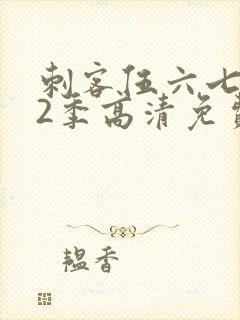 刺客伍六七
2季高清免费
韫香